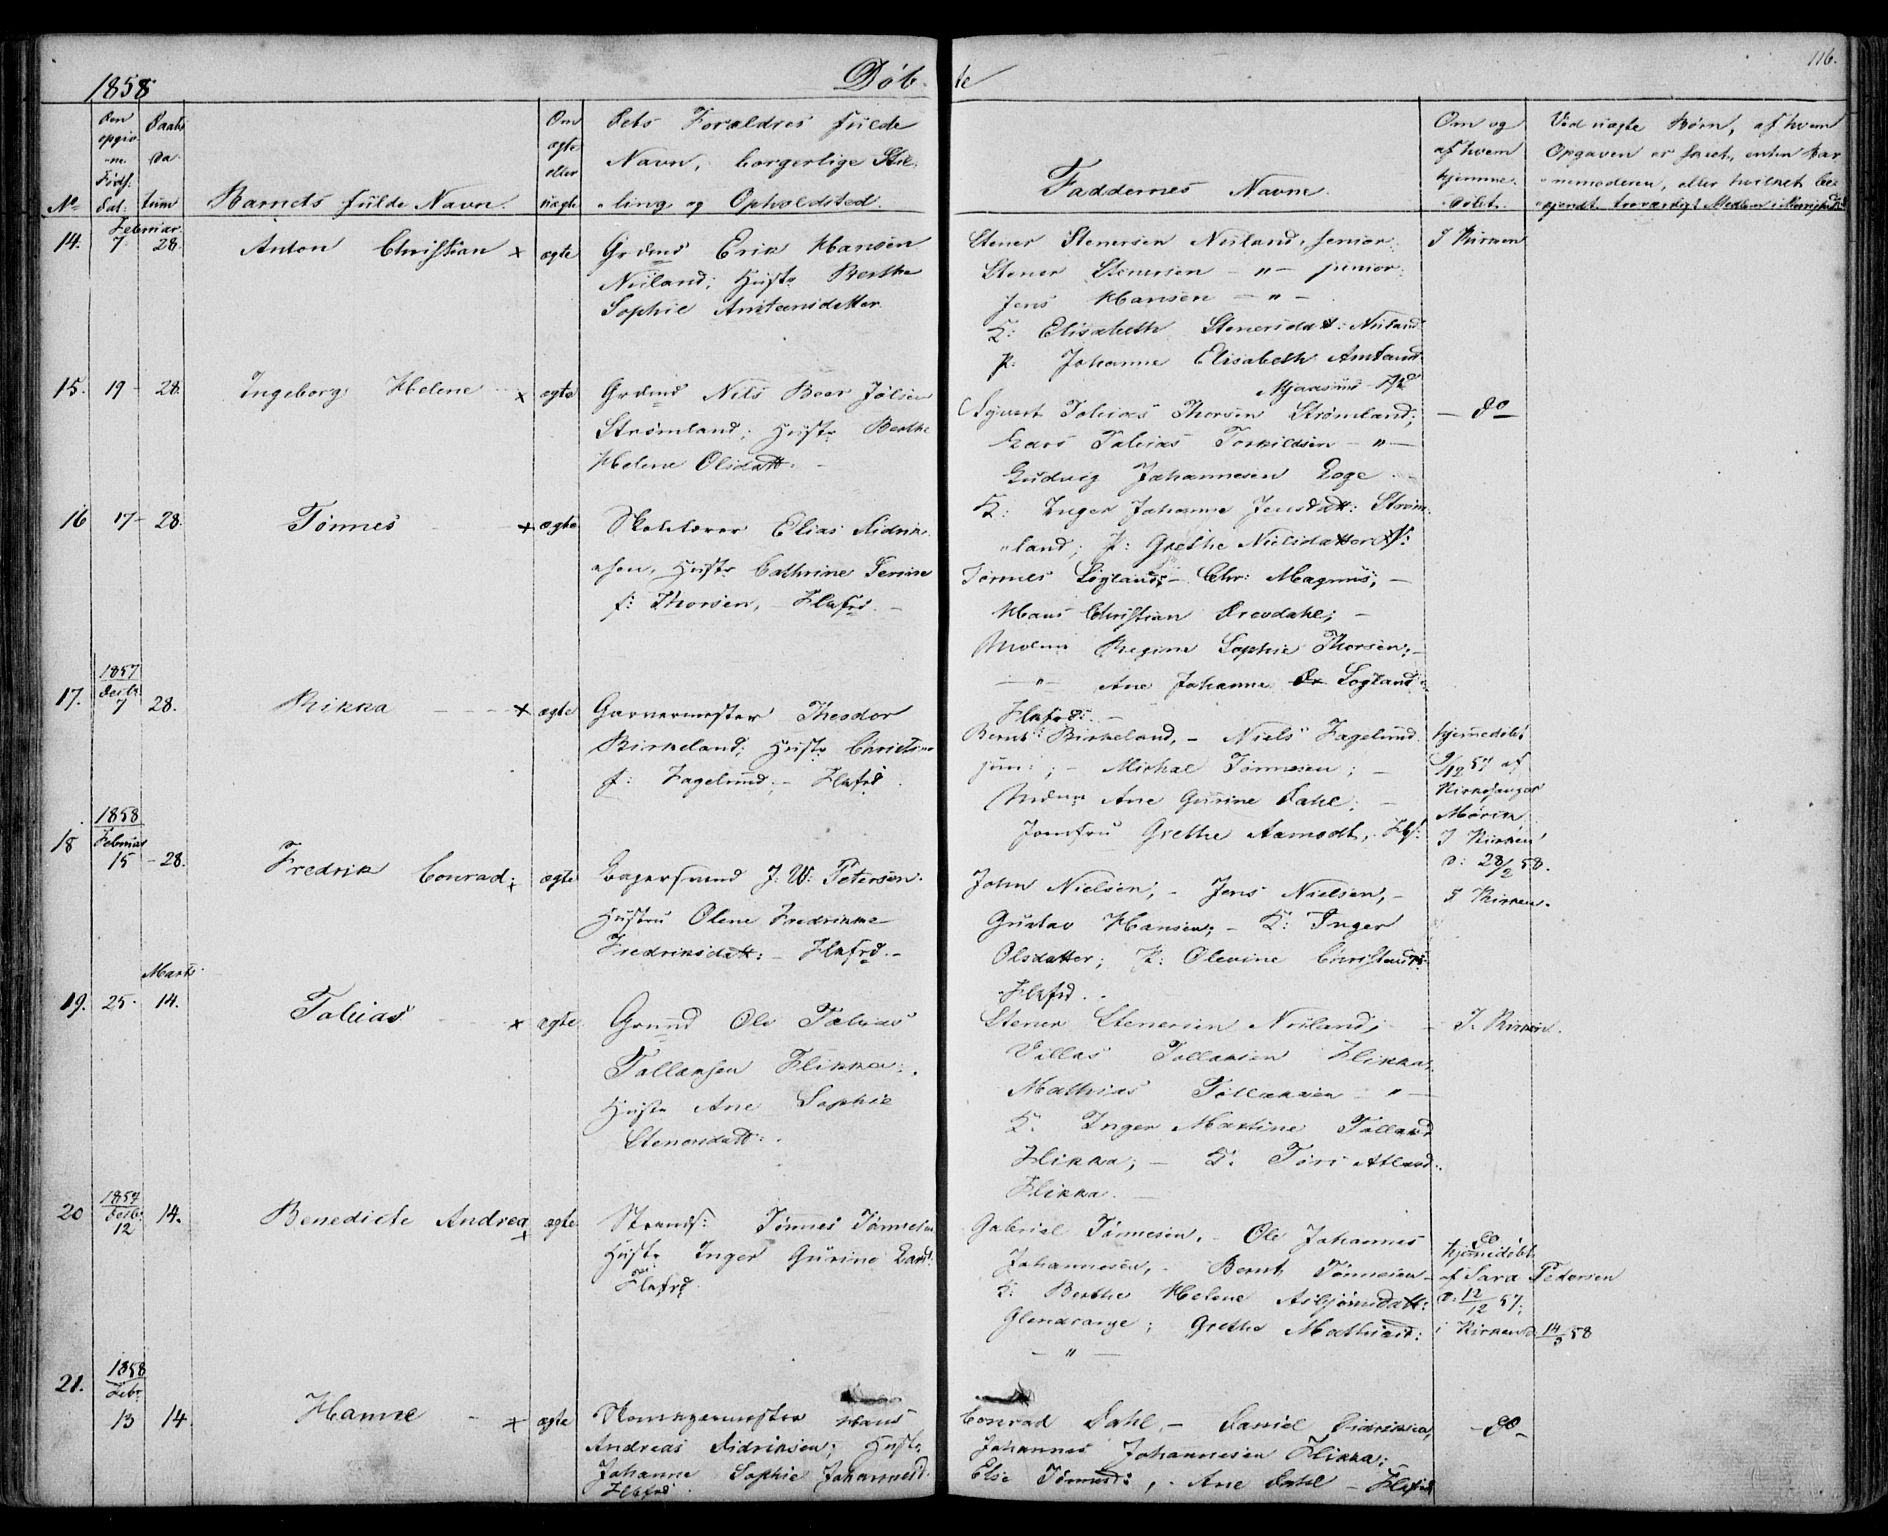 1858
Døb-
te
116.
Den opgiv-ne Føds. Dat:
Daabs Da-tum
No
Barnets fulde Navn.
Om ægte eller uægte
Dets Forældres fulde
Navn, borgerlige Stil-
ling og Opholdsted.
Faddernes Navne.
Om og
af hvem
hjemme-
døbt.
Ved uægte Børn, af hvem
Opgaven er skeet, enten Bar-
nemoderen, eller hvilket be-
kjendt troværdigt Medlem i Menighed
Februar
14. 7. 28. Anton Christian x ægte
Grdmd Erik Hansen
Nuland; Hustr Berthe
Sophie Amtænsdatter
Stener Stenersen Nuland, senior
Stener Stenersen - " - junior:
Jens Hansen - " -
K: Elisabeth Stenersdatt: Nuland
P. Johanne Elisabeth Amtand
I Kirken
15. 19 - 28. Ingeborg Helene x ægte
Grdmd Nils Beer Jølsen
Strømland; Hustr Berthe
Helene Olsdatt: -
Syvert Tobias Thorsen Strømland;
Lars Tobias Torkildsen - " -
Ludvig Johannesen Loge
K: Inger Johanne Jensdatt: Strøm-
land; P: Grethe Nielsdatter
- do -
16 17 - 28. Tønnes x ægte
Skolelærer Elias Didrik-
sen, Hustr Cathrine Serine
f: Thorsen, - Flekfrd. -
Tønnes Logland; - Chr: Magnus; -
Hans Christian Drevdahl; -
Mdme Regine Sophie Thorsen; -
- " - Ane Johanne Logland
Flekfrd: -
1857
Decbr
17. 7 28. Rikka x ægte
Garvermester Theodor
Birkeland; Hustr Christine
f: Fagelund; - Flekfrd.
Bernt Birkeland, - Niels Fagelund
jun: ; - Michal Tønnesen; -
Mdme Ane Gurine Dahl; -
Jomfru Grethe Aamodt, Flf:
hjemmedøbt
9/12 57 af
Kirkesanger
Mørch
I Kirken
d: 28/2 58.
1858
Februar
18 15 - 28. Fredrik Conrad; x ægte
Bagersvend J. W. Petersen.
Hustru Olene Fredrikke
Fredriksdatt: - Flekfrd. -
John Nielsen; - Jens Nielsen, -
Gustav Hansen; - K: Inger
Olsdatter; P: Olevine Christensd:
Flekfrd.
I Kirken.
Marts.
19. 25. 14. Tobias x ægte
Grmd Ole Tobias
Tollaksen Flikka:
Hustr Ane Sophie
Stenersdatt: .
Stener Stenersen Nuland;
Villas Tollaksen Flikka;
Mathias Tollaksen - " -
K. Inger Martine Tollaksd
Flikka; - K. Tori Atlaksd.
Flikka. -
I Kirken.
1857
Decbr
20 12 14. Benedicte Andrea x ægte
Strands: Tønnes Tønnesen
Hustr Inger Gurine Larsd:
Flekfrd.
Gabriel Tønnesen, - Ole Johannes
Johannesen, - Bernt Tønnesen -
K: Berthe Helene Asbjørnsdatt:
Glendrange; Grethe Mathiasd:
- " -
do
hjemmedøbt
af Sara Pedersen
d: 12/12 57;
i Kirken d. 14/3 58
1858
Febr.
21. 13 14 Hanne x ægte
Skomagermester Hans
Andreas Didriksen; Hustr
Johanne Sophie Johannesd.
Flekfrd.
Conrad Dahl, - Daniel Didriksen,
Johannes Johannesen Flikka;
Else Tønnesd: , - Ane Dahl - Flekfrd
- do -